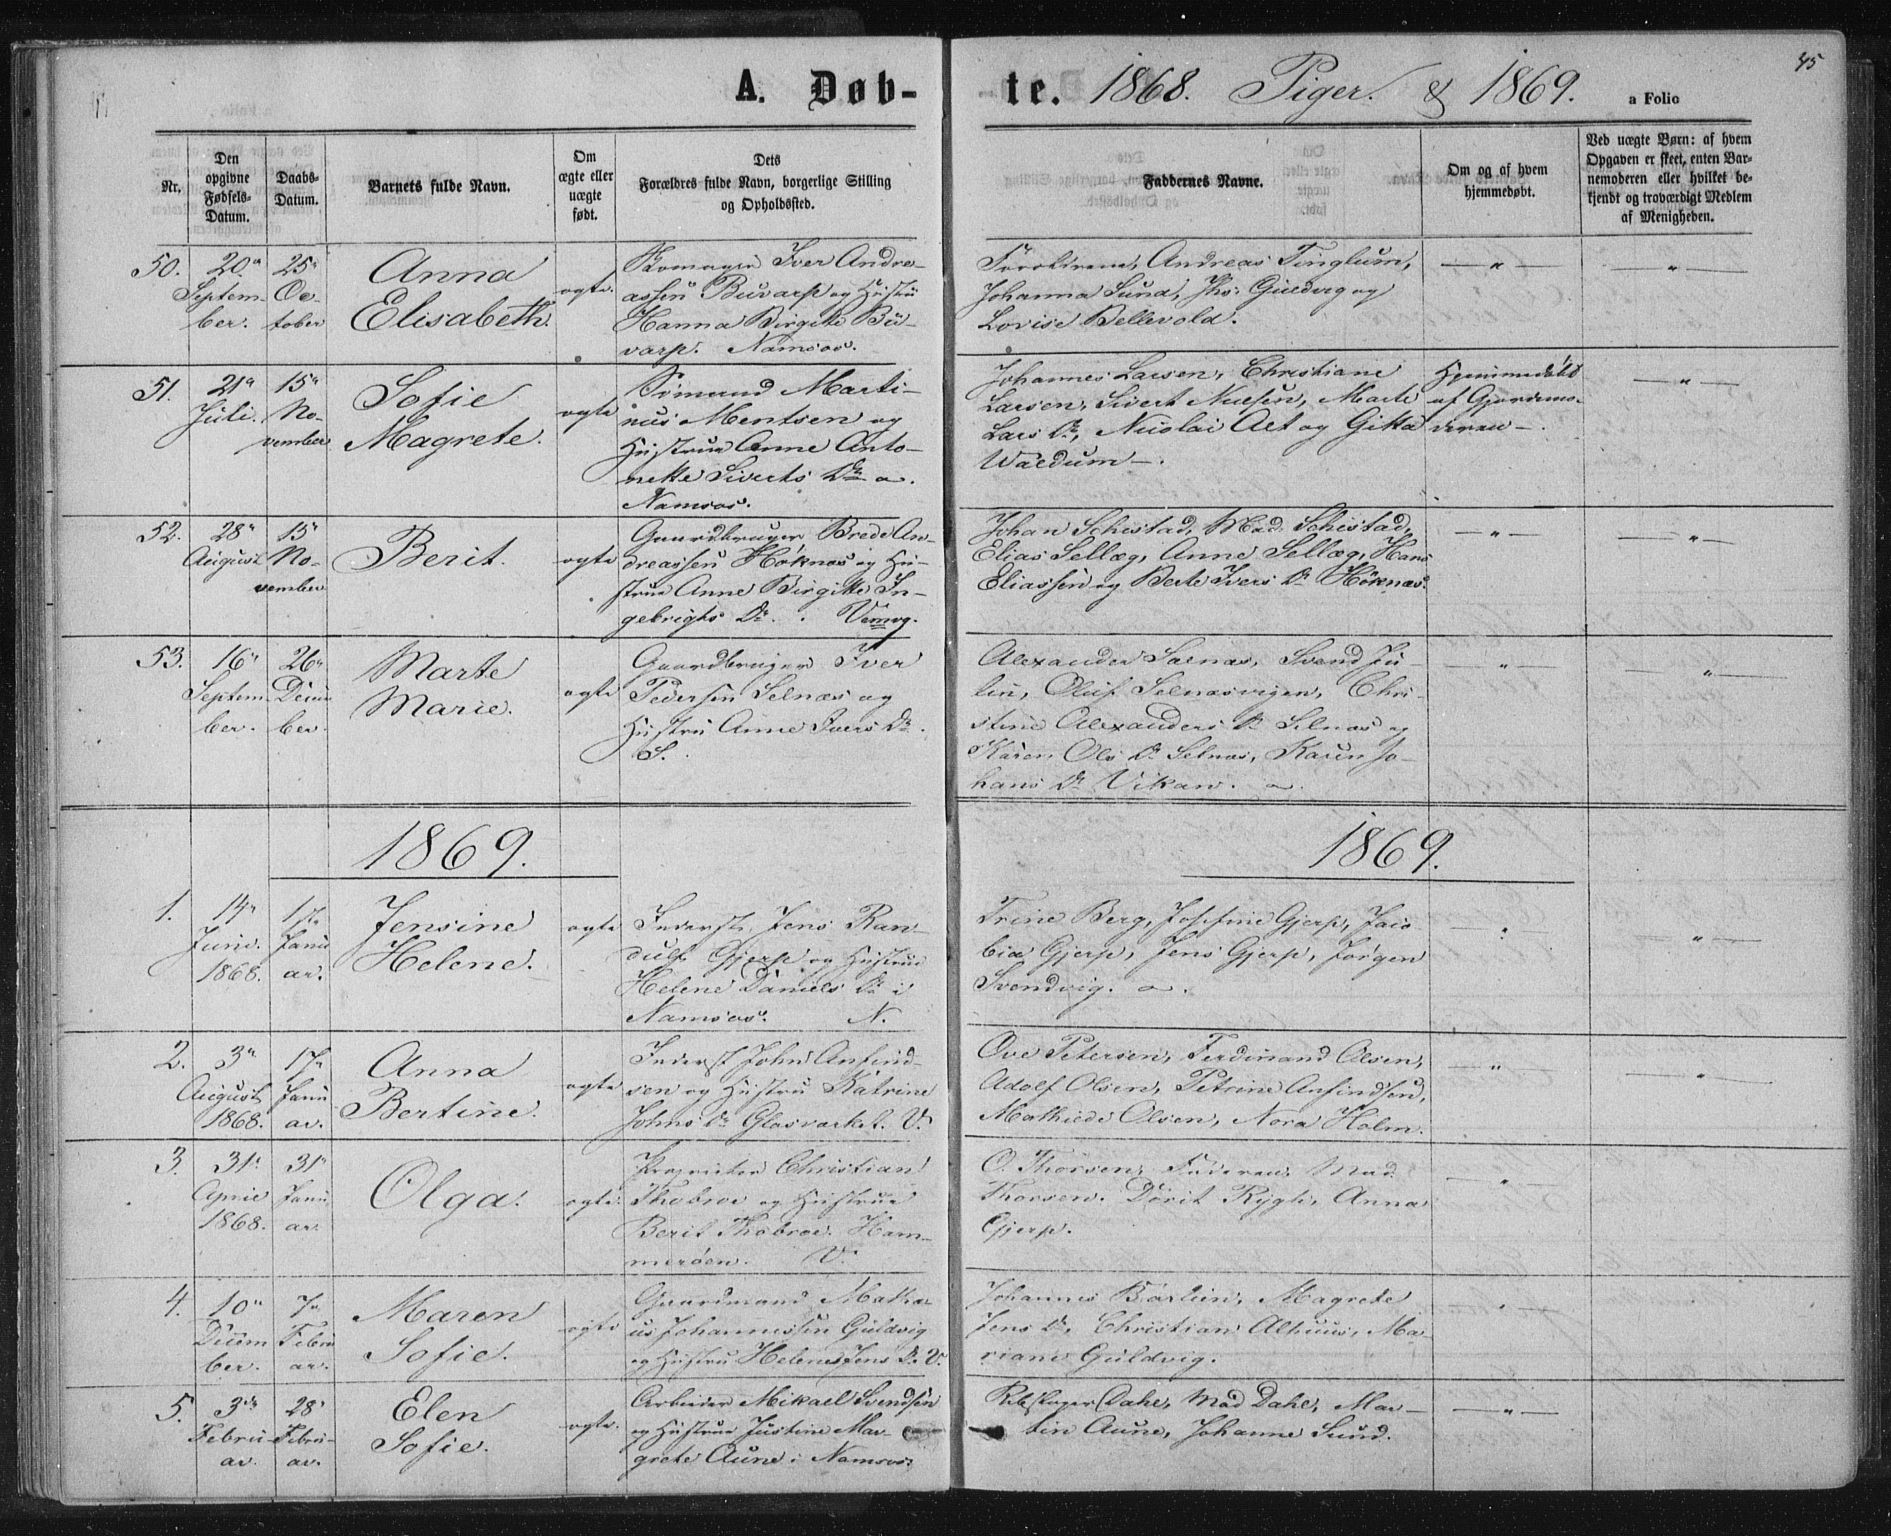 45
A. Døb-
te. 1868. Piger. & 1869. a Folio
Nr.
Den opgivne Fødsels-Datum.
Daabs-Datum.
Barnets fulde Navn.
Om ægte eller uægte født.
Dets Forældres fulde Navn, borgerlige Stilling og Opholdssted.
Faddernes Navne.
Om og af hvem hjemmedøbt.
Ved uægte Børn: af hvem Opgaven er skeet, enten Barnemoderen eller hvilket bekjendt og troværdigt Medlem af Menigheden.
50. 20de September. 25de October
Anna Elisabeth.
ægte.
Iver Andre-
assen Buvarp og Hustru
Hanna Birgitte Bu-
varp. Namsos.
Andreas Tinglum,
Johanna Sund, Joh: Guldvig og
Lovise Bellevold.
51. 21de Juli. 15de November
Sofie Magrete.
ægte
Sömand Marti-
nus Mentsen og
Hustru Anne Anto-
nette Siverts Dtr
Namsos.
Johannes Larsen, Christiane
Larsen, Sivert Nielsen, Marte
Lars Dr, Nicolai Aet og Gitta
Waldum
Hjemmedöbt
af Gjordemo-
deren
52. 28de August 15de November
Berit.
ægte
Gaardbruger Brede An-
dreassen Höknæs og Hu-
stru Anne Birgitte In-
gebrigts Dr. Vemog.
Johan Schistad, Mad. Schistad,
Elias Sellæg, Anne Sellæg, Hans
Eliassen og Berte Ivers Dr Höknæs.
53. 16de September. 26de December.
Marte Marie.
ægte
Gaardbruger Iver
Pedersen Selnæs og
Hustru Anne Ivers Dr.
S.
Alexander Selnæs, Svend Ju-
lin, Oluf Selnæsvigen, Chri-
stine Alexanders Dr Selnæs og
Karen Ols Dr Selnæs, Karen Jo-
hans Dr Vikan.
1869.
1869.
1. 14de Juni. 1868. 1ste Januar.
Jensine Helene.
ægte
Inderst Jens Ran-
dulf Gjerp og Hustru
Helene Daniels Dr i
Namsos. N.
Trine Berg, Josefine Gjerp, Jaco-
bia Gjerp, Jens Gjerp, Jørgen
Svendvig.
2. 3de August 1868. 17de Januar.
Anna Bertine.
ægte
Inderst John Anfind-
sen og Hustru Katrine
Johns Dr Glasværket. V.
Ove Petersen, Ferdinand Olsen,
Adolf Olsen, Petrine Anfindsen,
Mathilde Olsen, Nora Holm.
3. 31te April 1868. 31te Januar.
Olga.
ægte.
Proprietær Christian
Thobroe og Hustru
Berit Thobroe. Ham-
merøen. V.
O. Thorsen, Mad.
Thorsen. Dorit Rygh, Anna
Gjerp.
4. 10de December. 7de Februar.
Maren Sofie.
ægte
Gaardmand Mathæ-
us Johannessen Guldvig
og Hustru Helene Jens Dr. V.
Johannes Bärlien, Magrete
Jens Dr, Christian Alhuus, Ma-
riane Guldvig.
5. 3de Februar. 28de Februar.
Elen Sofie.
ægte.
Arbeider Mikael Svendsen
og Hustru Justine Mar-
grete Aune i Namsos.
Dahl, Mad Dahl, Mar-
tin Aune, Johanne Sund.